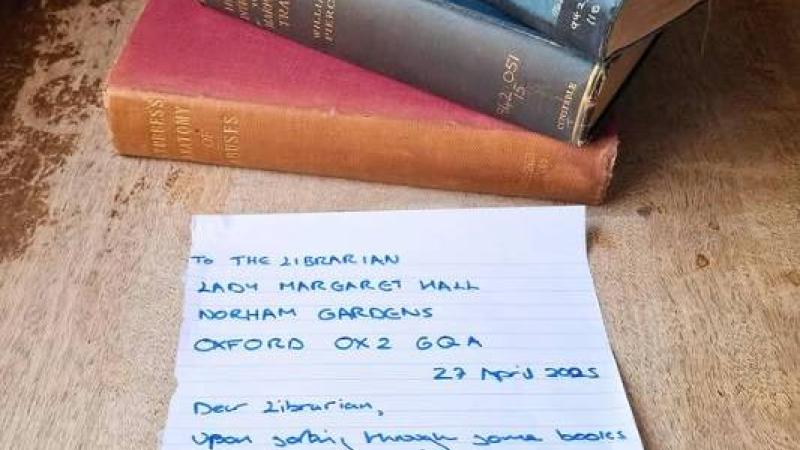 WILLIAM
PIERCE
942.051
15
CONSTABLE
942
110
STUBBES'S
ANATOMY
OF
ABUSES
To THE LIBRARIAN
LADY MARGARET HALL
NORHAM GARDENS
OXFORD OX2 6QA
27 April 2025
Dear Librarian,
Upon sorting through some books